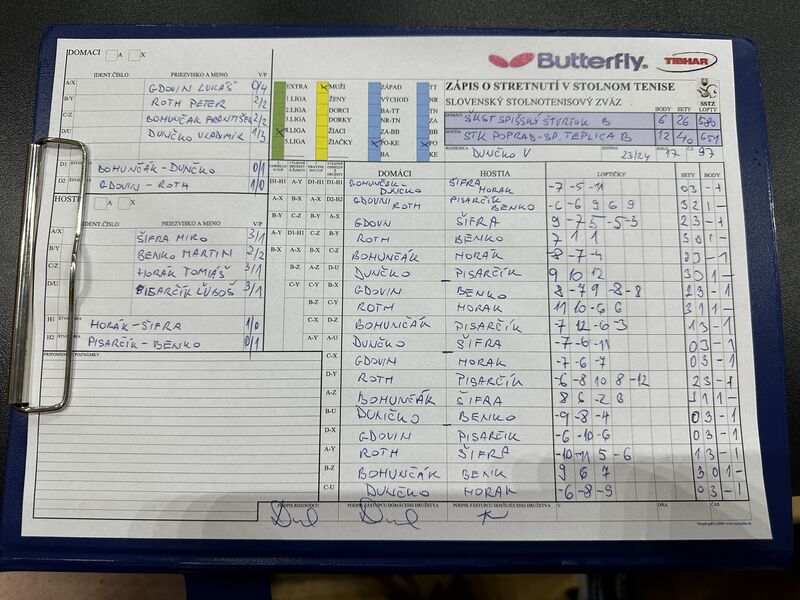 DOMÁCI A X
IDENT.ČÍSLO PRIEZVISKO A MENO V/P
A/X GDOVIN LUKÁŠ 0/4
B/Y ROTH PETER 2/2
C/Z BOHUNČÁK FRANTIŠEK 2/2
D/U DUNČKO VLADIMÍR 1/3
D1 BOHUNČÁK-DUNČKO 0/1
D2 GDOVIN-ROTH 1/0
HOSTIA A X
IDENT.ČÍSLO PRIEZVISKO A MENO V/P
A/X ŠIFRA MIRO 3/1
B/Y BENKO MARTIN 2/2
C/Z HORÁK TOMÁŠ 3/1
D/U PISARČÍK ĽUBOŠ 3/1
H1 HORÁK-ŠIFRA 1/0
H2 PISARČÍK-BENKO 0/1
PRIPOMIENKY-POZNÁMKY
Butterfly. TIBHAR
EXTRA MUŽI ZÁPAD TT
1.LIGA ŽENY VÝCHOD NR
2.LIGA DORCI BA-TT TN
3.LIGA DORKY NR-TN ZA
4.LIGA ŽIACI ZA-BB BB
5.LIGA ŽIAČKY PO-KE PO
BA KE
ZÁPIS O STRETNUTÍ V STOLNOM TENISE
SLOVENSKÝ STOLNOTENISOVÝ ZVÄZ
SSTZ
BODY SETY LOPTY
DOMÁCI ŠKST SPIŠSKÝ ŠTVRTOK B 6 26 580
HOSTIA STK POPRAD-SP. TEPLICA B 12 40 651
ROZHODCA DUNČKO V SEZÓNA 23/24 KOLO 17 Č. 97
DOMÁCI HOSTIA LOPTIČKY SETY BODY
D1-H1 A-Y A-X D1-H1 BOHUNČÁK DUNČKO ŠIFRA HORÁK -7 -5 -11 0 3 - 1
A-X B-X B-Y D2-H2 GDOVIN ROTH PISARČÍK BENKO -6 -6 9 6 9 3 2 1 -
B-Y C-Z C-Z A-X GDOVIN ŠIFRA 9 -7 5 -5 -3 2 3 - 1
A-Y D1-H1 C-X B-Y ROTH BENKO 7 1 1 3 0 1 -
B-X A-X A-Y C-Z BOHUNČÁK HORÁK -8 -7 -4 0 3 - 1
B-Z A-Z D-U DUNČKO PISARČÍK 9 10 12 3 0 1 -
C-Y B-X GDOVIN BENKO 8 -7 9 -8 -8 2 3 - 1
B-Z C-Y ROTH HORÁK 11 10 -6 6 3 1 1 -
C-X D-Z BOHUNČÁK PISARČÍK -7 12 -6 -3 1 3 - 1
A-Y A-U DUNČKO ŠIFRA -7 -6 -11 0 3 - 1
C-X GDOVIN HORÁK -7 -6 -7 0 3 - 1
D-Y ROTH PISARČÍK -6 -8 10 8 -12 2 3 - 1
A-Z BOHUNČÁK ŠIFRA 8 6 -2 8 3 1 1 -
B-U DUNČKO BENKO -9 -8 -4 0 3 - 1
D-X GDOVIN PISARČÍK -6 -10 -6 0 3 - 1
A-Y ROTH ŠIFRA -10 -11 5 -6 1 3 - 1
B-Z BOHUNČÁK BENK 9 6 7 3 0 1 -
C-U DUNČKO HORÁK -6 -8 -9 0 3 - 1
PODPIS ROZHODCU PODPIS ZÁSTUPCU DOMÁCEHO DRUŽSTVA PODPIS ZÁSTUPCU HOSŤUJÚCEHO DRUŽSTVA V DŇA ČAS